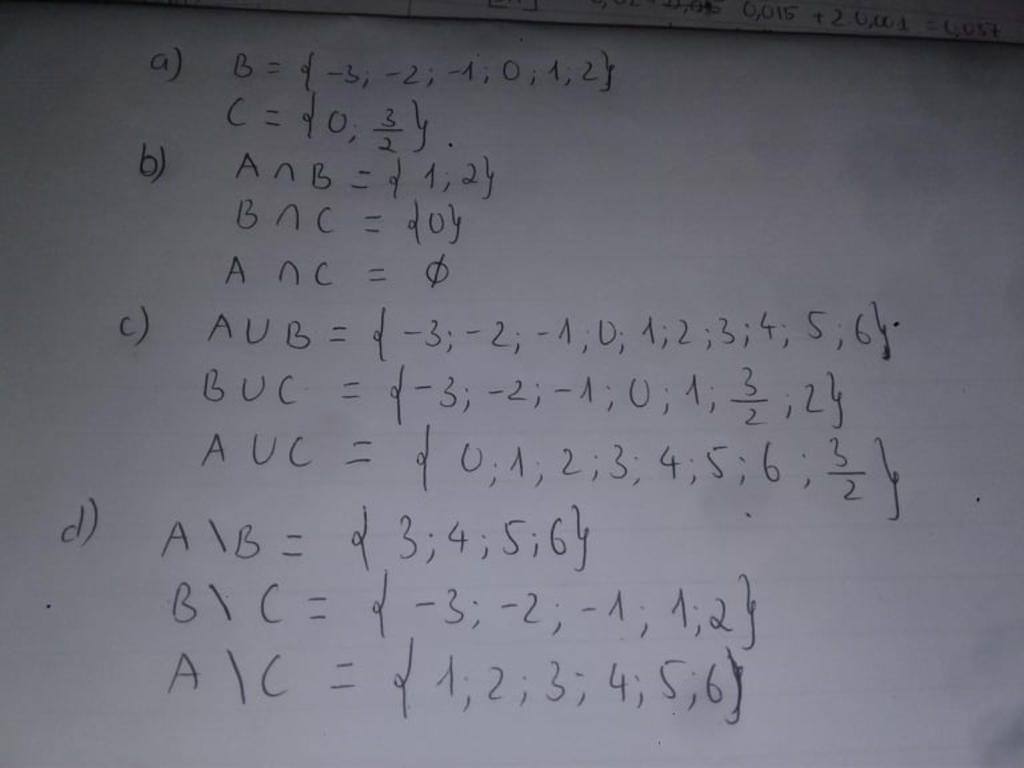 0,015 + 2.0,001 = 0,057
a) B = { -3; -2; -1; 0; 1; 2}
C = {0; 3/2}.
b) A ∩ B = { 1; 2}
B ∩ C = {0}
A ∩ C = ∅
c) A ∪ B = { -3; -2; -1; 0; 1; 2; 3; 4; 5; 6}
B ∪ C = { -3; -2; -1; 0; 1; 3/2; 2}
A ∪ C = { 0; 1; 2; 3; 4; 5; 6; 3/2}
d) A \ B = { 3; 4; 5; 6}
B \ C = { -3; -2; -1; 1; 2}
A \ C = { 1; 2; 3; 4; 5; 6}